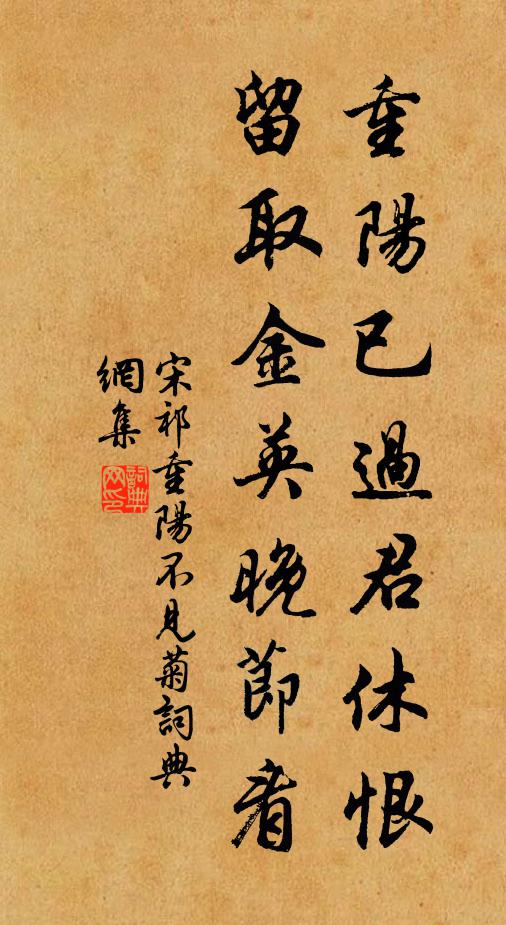 重陽已過君休恨
留取金英晚節看
宋祁重陽不見菊詞典
網集
詞典網印